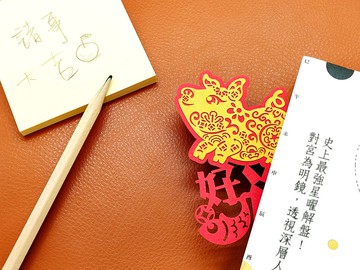 諸事
大吉
好
史上最強星曜解盤！
對宮為明鏡，透視深層人
午
未
申
酉
辰